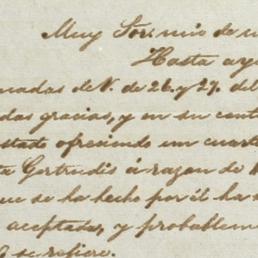 Muy Sor. mio de
Hasta aye
nadas de V. de 26. y 27. del
das gracias, y en su cont
stado ofreciendo un cuart
ta Gertrudis á razon de
ue se ha hecho por él ha s
aceptada, y probableme
se refiere.